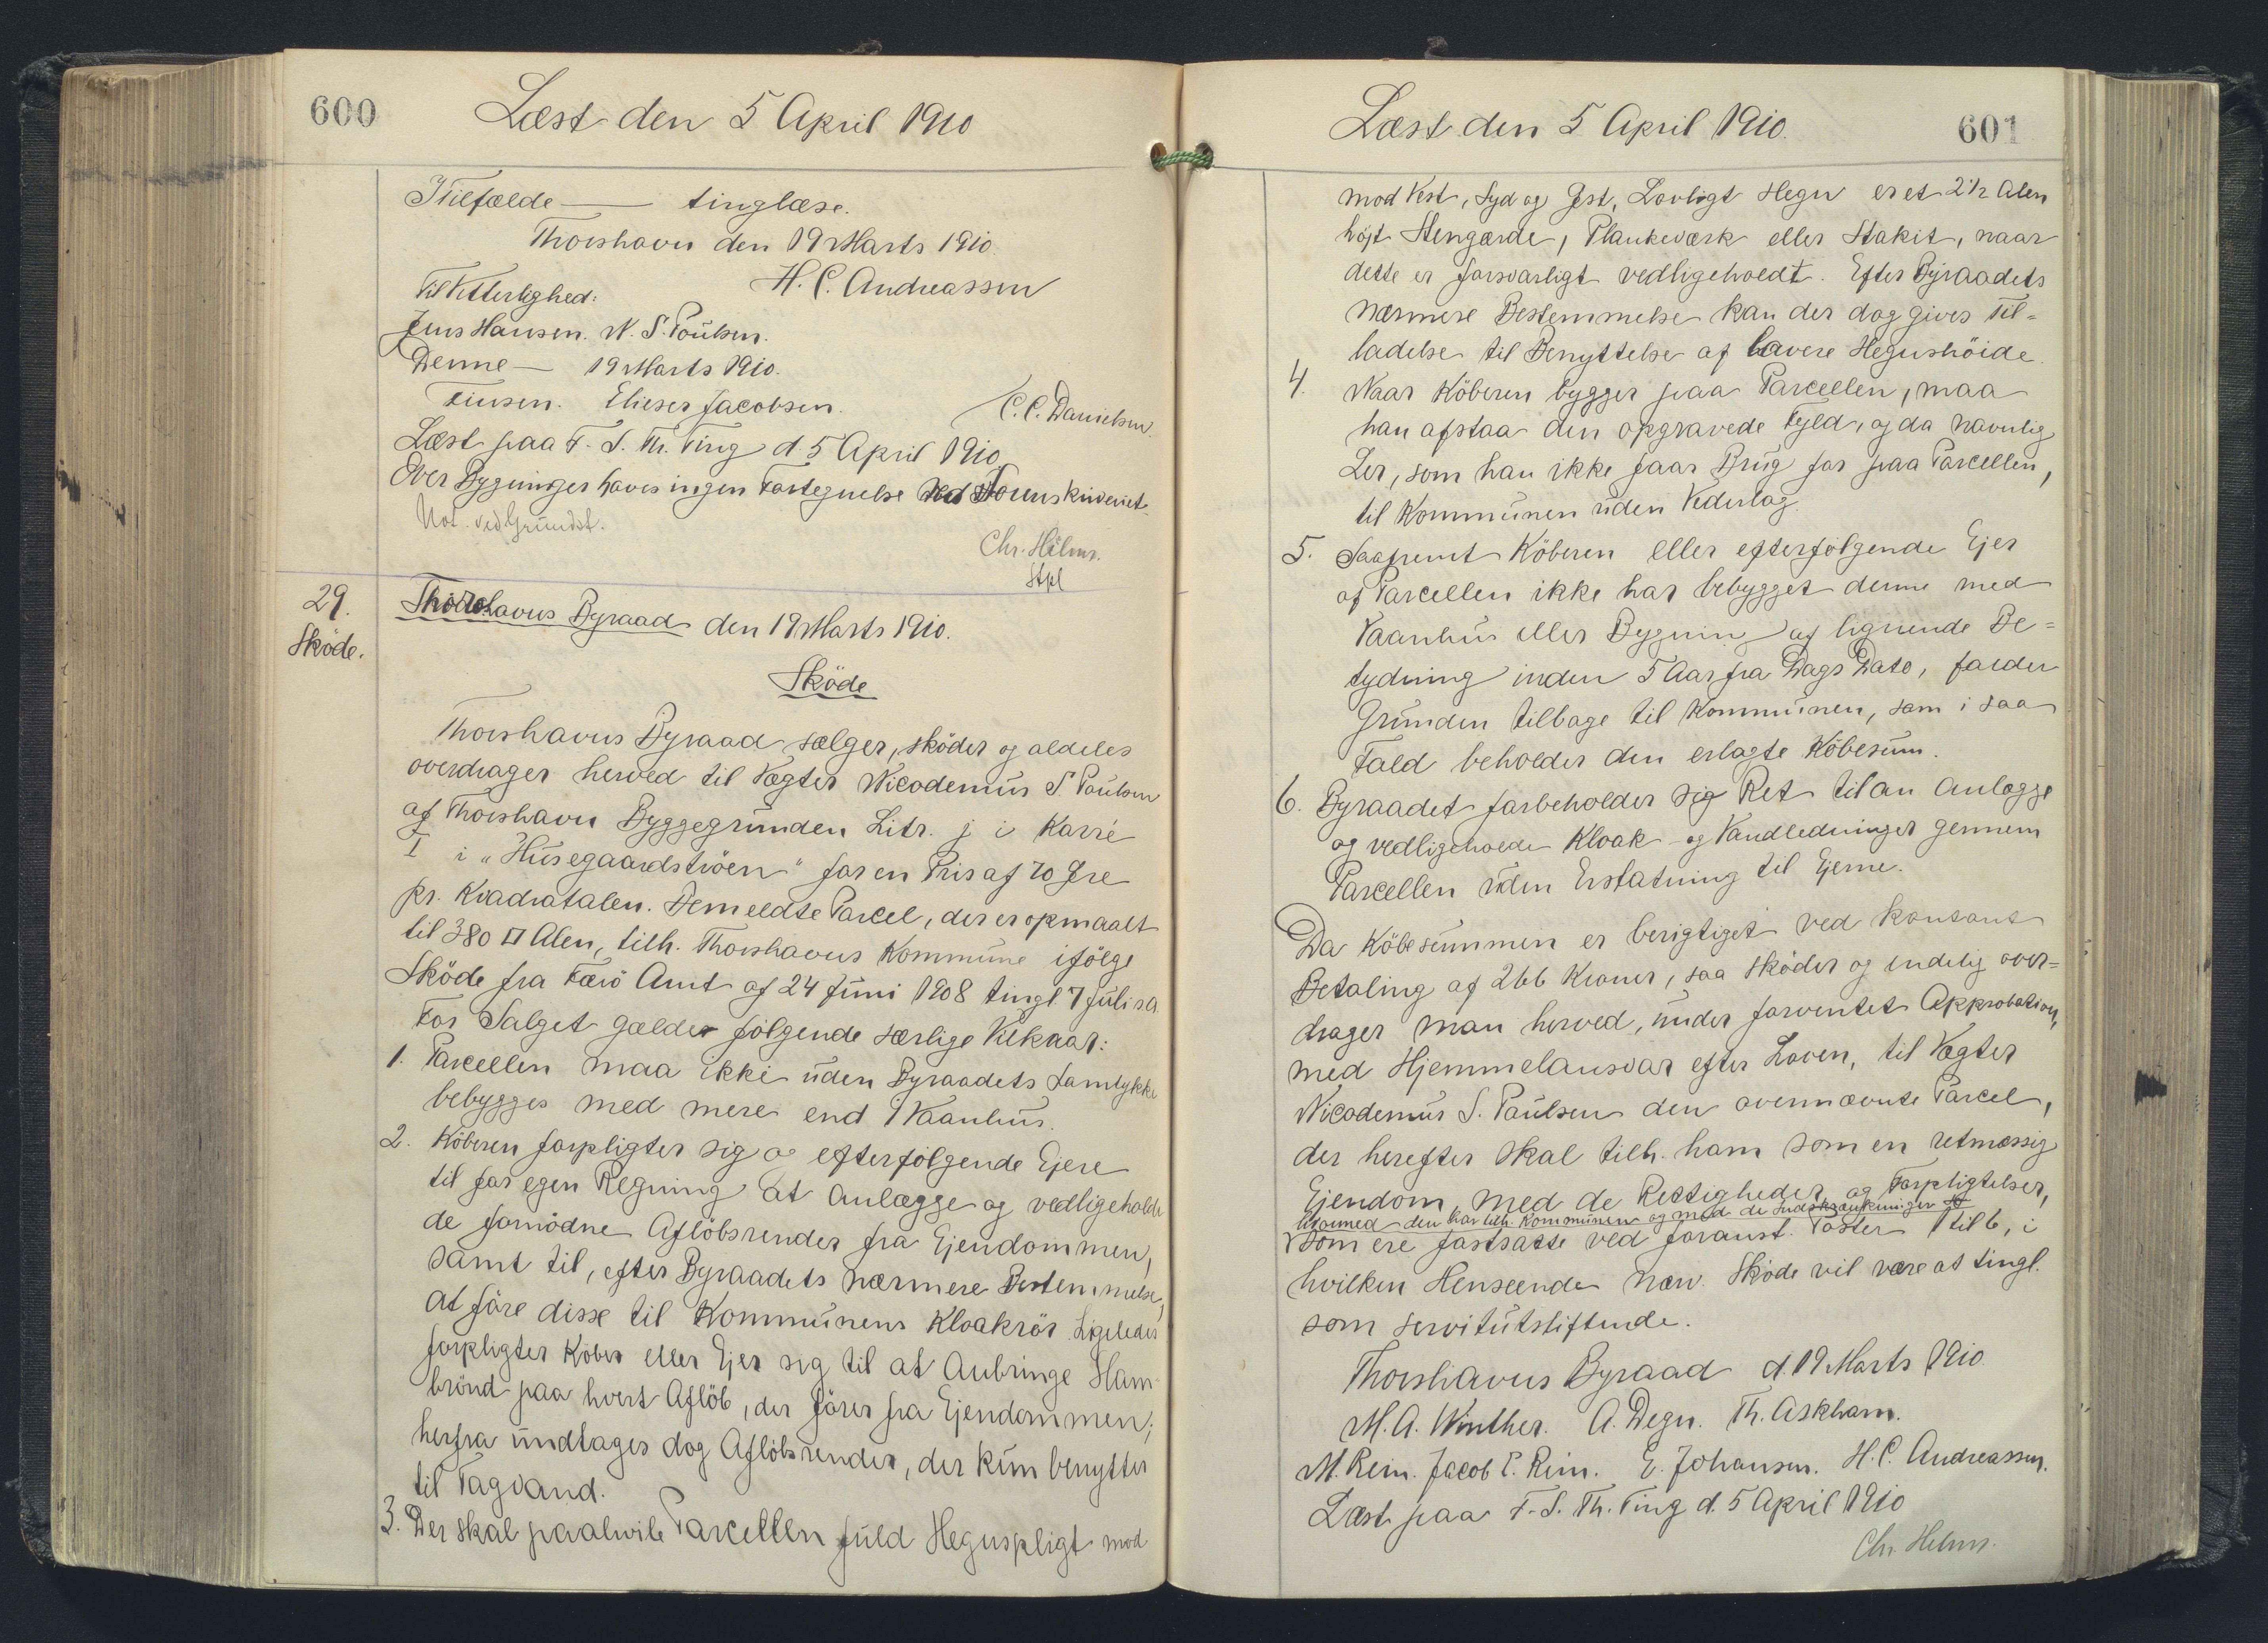 600
Læst den 5 April 1910
I Tilfælde — tinglæse.
Thorshavn den 19 Marts 1910.
H. C. Andreassen
Til Vitterlighed:
Jens Hansen. N. S. Poulsen.
Denne — 19 Marts 1910.
Finsen. Elieser Jacobsen.
C. C. Danielsen.
Læst paa F. S. Th. Ting d. 5 April 1910
Over Bygninger haves ingen Fortegnelse ved Sorenskriveriet.
Not. ved Grundst.
Chr. Helms.
Stpl
29.
Sköde.
Thorshavns Byraad den 19 Marts 1910.
Sköde
Thorshavns Byraad sælger, sköder og aldeles
overdrager herved til Vægter Nicodemus S. Poulsen
af Thorshavn Byggegrunden Litr. j i Karré
I i "Husegaardströen" for en Pris af 70 Øre
pr. Kvadratalen. Bemeldte Parcel, der er opmaalt
til 380 □ Alen, tilh. Thorshavns Kommune ifölge
Sköde fra Færö Amt af 24 Juni 1908 tingl 7 Juli s. A.
For Salget gælder fölgende særlige Vilkaar:
1. Parcellen maa ikke uden Byraadets Samtykke
bebygges med mere end 1 Vaanhus.
2. Köberen forpligter sig og efterfölgende Ejere
til for egen Regning at anlægge og vedligeholde
de fornödne Aflöbsrender fra Ejendommen,
samt til, efter Byraadets nærmere Bestemmelse,
at före disse til Kommunens Kloakrör. Ligeledes
forpligter Köber eller Ejer sig til at anbringe Slam-
brönd paa hvert Aflöb, der förer fra Ejendommen;
herfra undtages dog Aflöbsrender, der kun benyttes
til Tagvand.
3. Der skal paahvile Parcellen fuld Hegnspligt mod
Læst den 5 April 1910.
601
mod Vest, Syd og Øst, Lovligt Hegn er et 2 1/2 Alen
höjt Stengærde, Plankeværk eller Stakit, naar
dette er forsvarligt vedligeholdt. Efter Byraadets
nærmere Bestemmelse kan der dog gives Til-
ladelse til Benyttelse af lavere Hegnshöide.
4. Naar Köberen bygger paa Parcellen, maa
han afstaa den opgravede Fyld, og da navnlig
Ler, som han ikke faar Brug for paa Parcellen,
til Kommunen uden Vederlag.
5. Saafremt Köberen eller efterfölgende Ejer
af Parcellen ikke har bebygget denne med
Vaanhus eller Bygning af lignende Be-
tydning inden 5 Aar fra Dags Dato, falder
Grunden tilbage til Kommunen, som i saa
Fald beholder den erlagte Köbesum.
6. Byraadet forbeholder sig Ret til an anlægge
og vedligeholde Kloak- og Vandledninger gennem
Parcellen uden Erstatning til Ejerne.
Da Köbesummen er berigtiget ved kontant
Betaling af 266 Kroner, saa sköder og endelig over-
drager man herved, under forventet Approbation,
med Hjemmelansvar efter Loven, til Vægter
Nicodemus S. Poulsen den ovennævnte Parcel,
der herefter skal tilh. ham som en retmæssig
Ejendom, med de Rettigheder og Forpligtelser,
hvormed den har tilh. Kommunen og med de Indskrænkninger
som ere fastsatte ved foranst. Poster 1 til 6, i
hvilken Henseende nærv. Sköde vil være at tingl.
som servitutstiftende.
Thorshavns Byraad d. 19 Marts 1910.
M. A. Winther. A. Degn. Th. Askham.
M. Rein. Jacob C. Rein. E. Johansen. H. C. Andreassen.
Læst paa F. S. Th. Ting d. 5 April 1910
Chr. Helms.